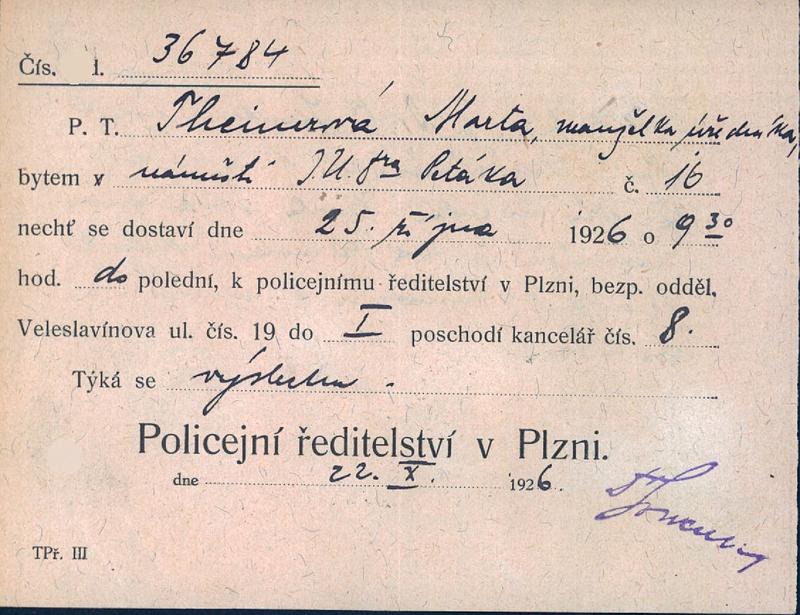 Čís. d. 36784
P. T. Theinerová Marta, manželka úředníka,
bytem v náměstí JU Dra Petáka č. 16
nechť se dostaví dne 25. října 1926 o 9 30
hod. do polední, k policejnímu ředitelství v Plzni, bezp. odděl.
Veleslavínova ul. čís. 19 do I poschodí kancelář čís. 8.
Týká se výslechu.
Policejní ředitelství v Plzni.
dne 22. X. 1926.
TPř. III